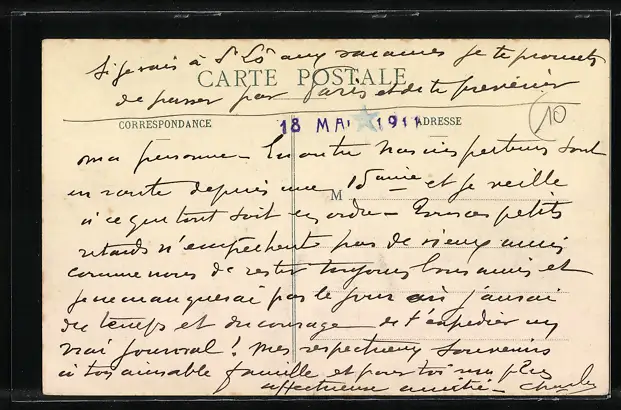 Si je vais à St Lô aux vacances je te promets
CARTE POSTALE
de passer par Paris et de te prévenir
10
CORRESPONDANCE
18 MAI 1911
ADRESSE
ma personne - En outre nos inspecteurs sont
en route depuis une 15aine et je veille
M
à ce que tout soit en ordre - Tous ces petits
retards n'empêchent pas de vieux amis
comme nous de rester toujours bons amis et
je ne manquerai pas le jour où j'aurai
du temps et du courage de t'expédier un
vrai journal ! Mes respectueux souvenirs
à ton aimable famille et pour toi ma plus
affectueuse amitié - Charles